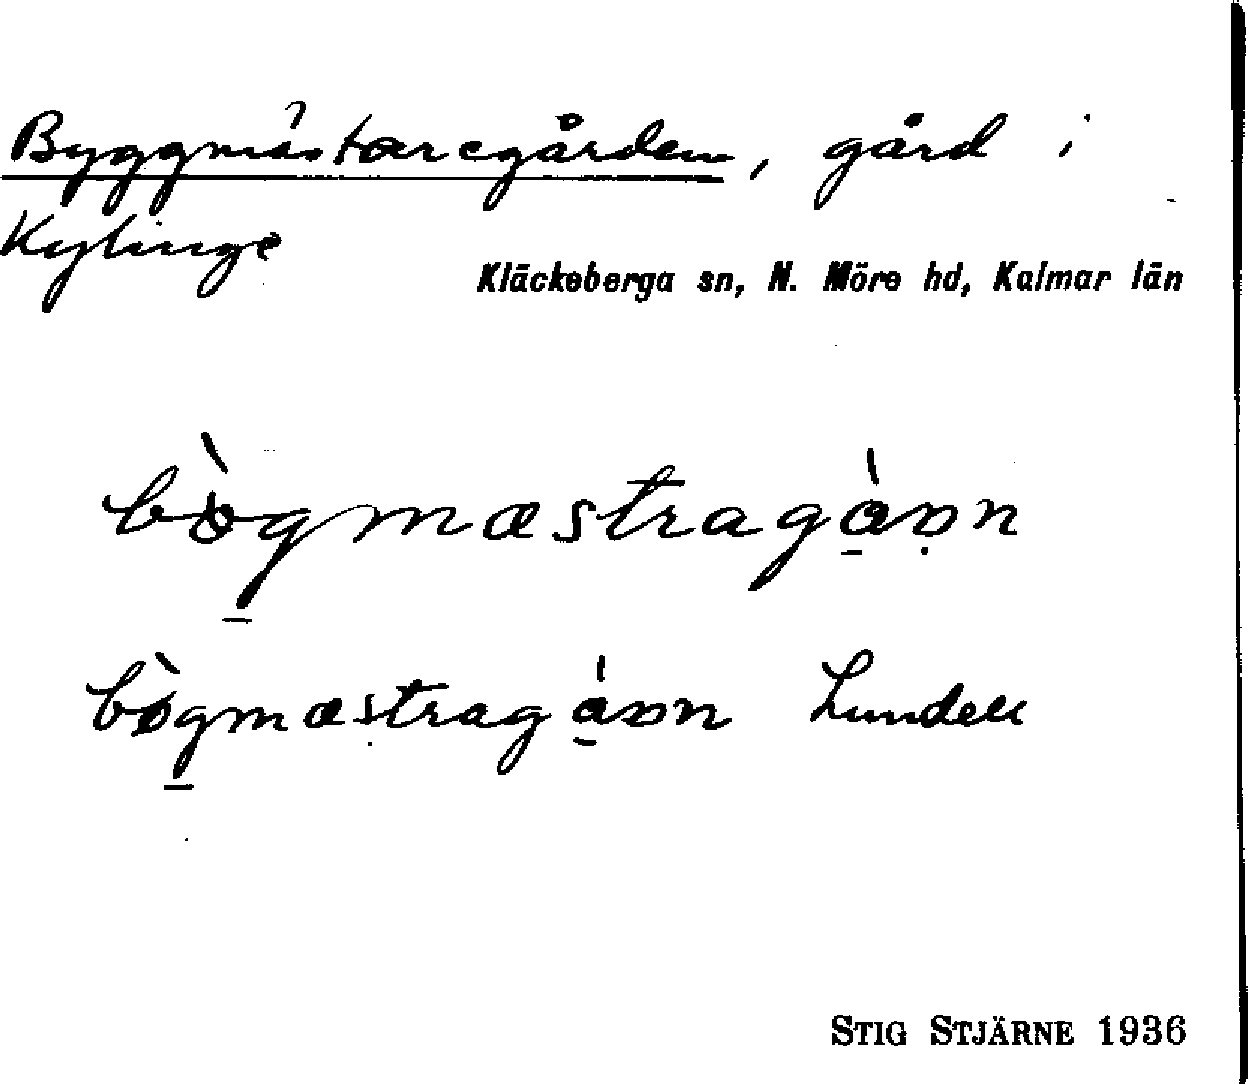 Byggmästaregården, gård i
Kylinge
Kläckeberga sn, N. Möre hd, Kalmar län
Lundell
STIG STJÄRNE 1936